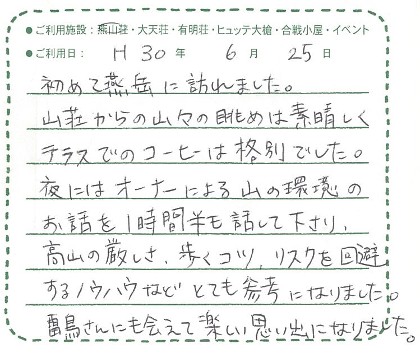 ●ご利用施設：燕山荘・大天荘・有明荘・ヒュッテ大槍・合戦小屋・イベント
●ご利用日： H 30 年 6 月 25 日
初めて燕岳に訪れました。
山荘からの山々の眺めは素晴しく
テラスでのコーヒーは格別でした。
夜にはオーナーによる山の環境の
お話を1時間半も話して下さり、
高山の厳しさ、歩くコツ、リスクを回避
するノウハウなどとても参考になりました。
雷鳥さんにも会えて楽しい思い出になりました。